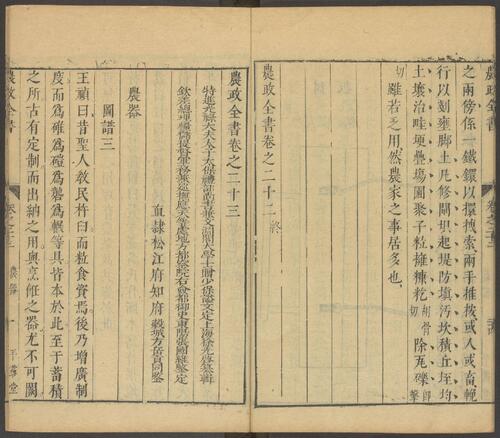 之兩傍係一鐵鐶以擐拽索兩手推按或人或畜輓
行以刻壅脚土凡修閘壩起堤防填污坎積丘垤均
土壤治畦埂疊塲圃聚子粒擁糠籺胡骨切除瓦礫郎擊
切雖若乏用然農家之事居多也
農政全書卷之二十二終
農政全書卷之二十三
特進光祿大夫太子太保禮部尚書兼文淵閣大學士贈少保謚文定上海徐光啓纂輯
欽差總理糧儲提督軍務兼巡撫應天等處地方都察院右僉都御史東陽張國維鑒定
直隸松江府知府穀城方岳貢同鑒
農器
圖譜三
王禎曰昔聖人敎民杵臼而粒食資焉後乃增廣制
度而爲碓爲磑爲礱爲輾等具皆本於此至于蓄積
之所古有定制而出納之用與烹飪之器尤不可闕
農政全書
卷之二十三
農器
一
平露堂